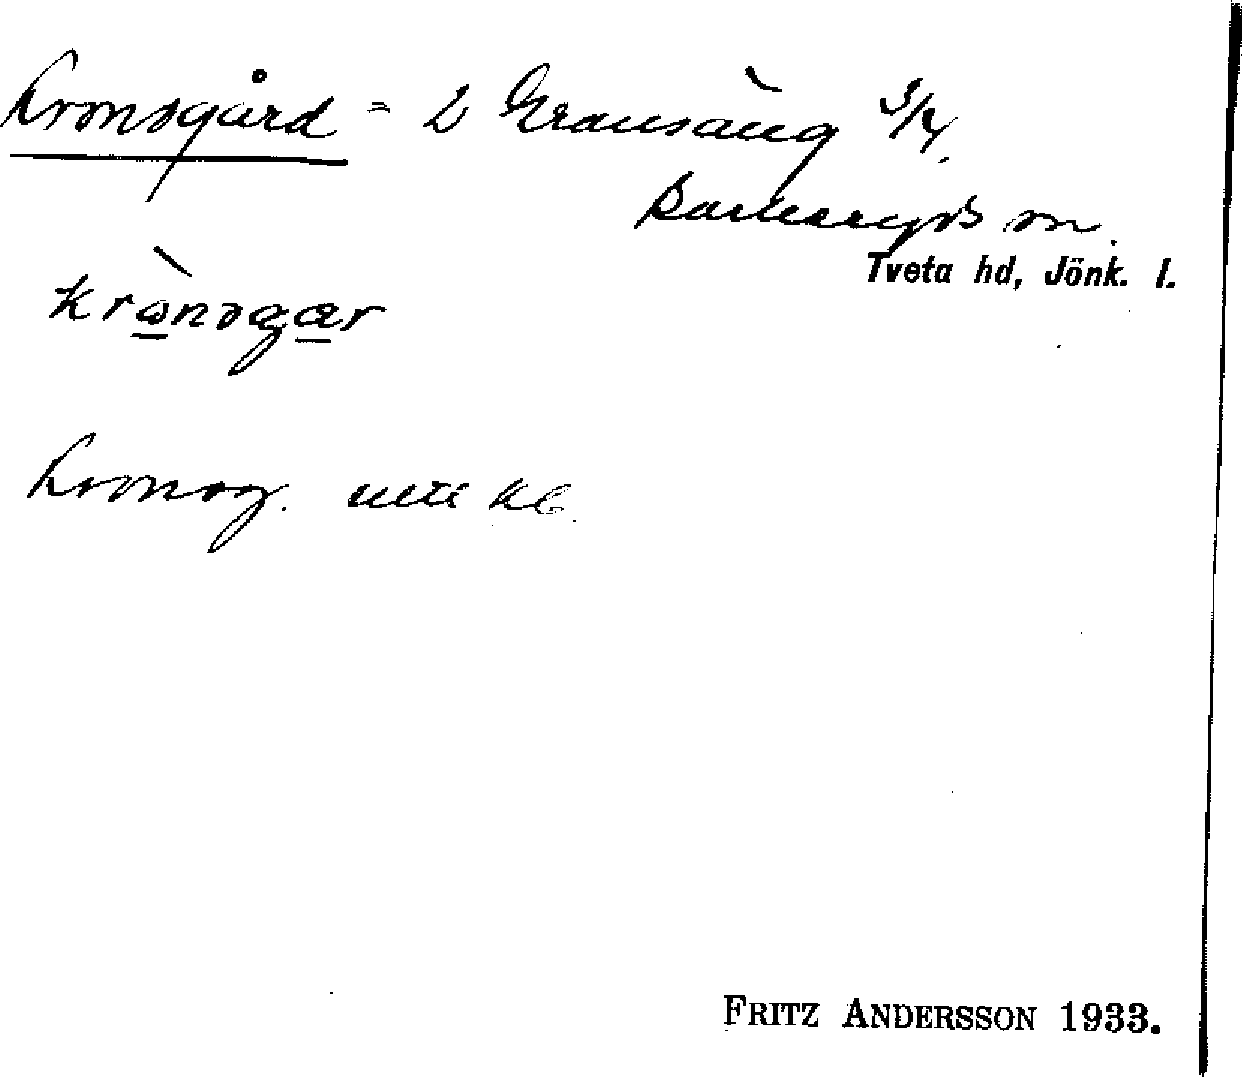 Kronsgård = L Gransäng 3/4.
Barkeryds sn.
Tveta hd, Jönk. l.
krònsgar
Kronsg.
FRITZ ANDERSSON 1933.